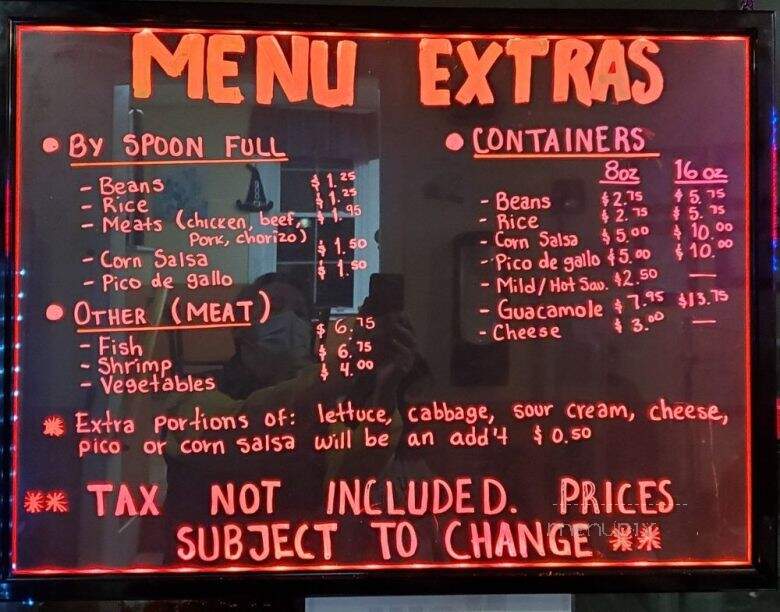 MENU EXTRAS
• BY SPOON FULL
- Beans $1.25
- Rice $1.25
- Meats (chicken, beef, $1.95
Pork, chorizo)
- Corn Salsa $1.50
- Pico de gallo $1.50
• OTHER (MEAT)
- Fish $6.75
- Shrimp $6.75
- Vegetables $4.00
• CONTAINERS
8oz 16 oz
- Beans $2.75 $5.75
- Rice $2.75 $5.75
- Corn Salsa $5.00 $10.00
- Pico de gallo $5.00 $10.00
- Mild/Hot Sau. $2.50 —
- Guacamole $7.95 $13.75
- Cheese $3.00 —
* Extra portions of: lettuce, cabbage, sour cream, cheese,
pico or corn salsa will be an add'l $0.50
** TAX NOT INCLUDED. PRICES
SUBJECT TO CHANGE **
menupix